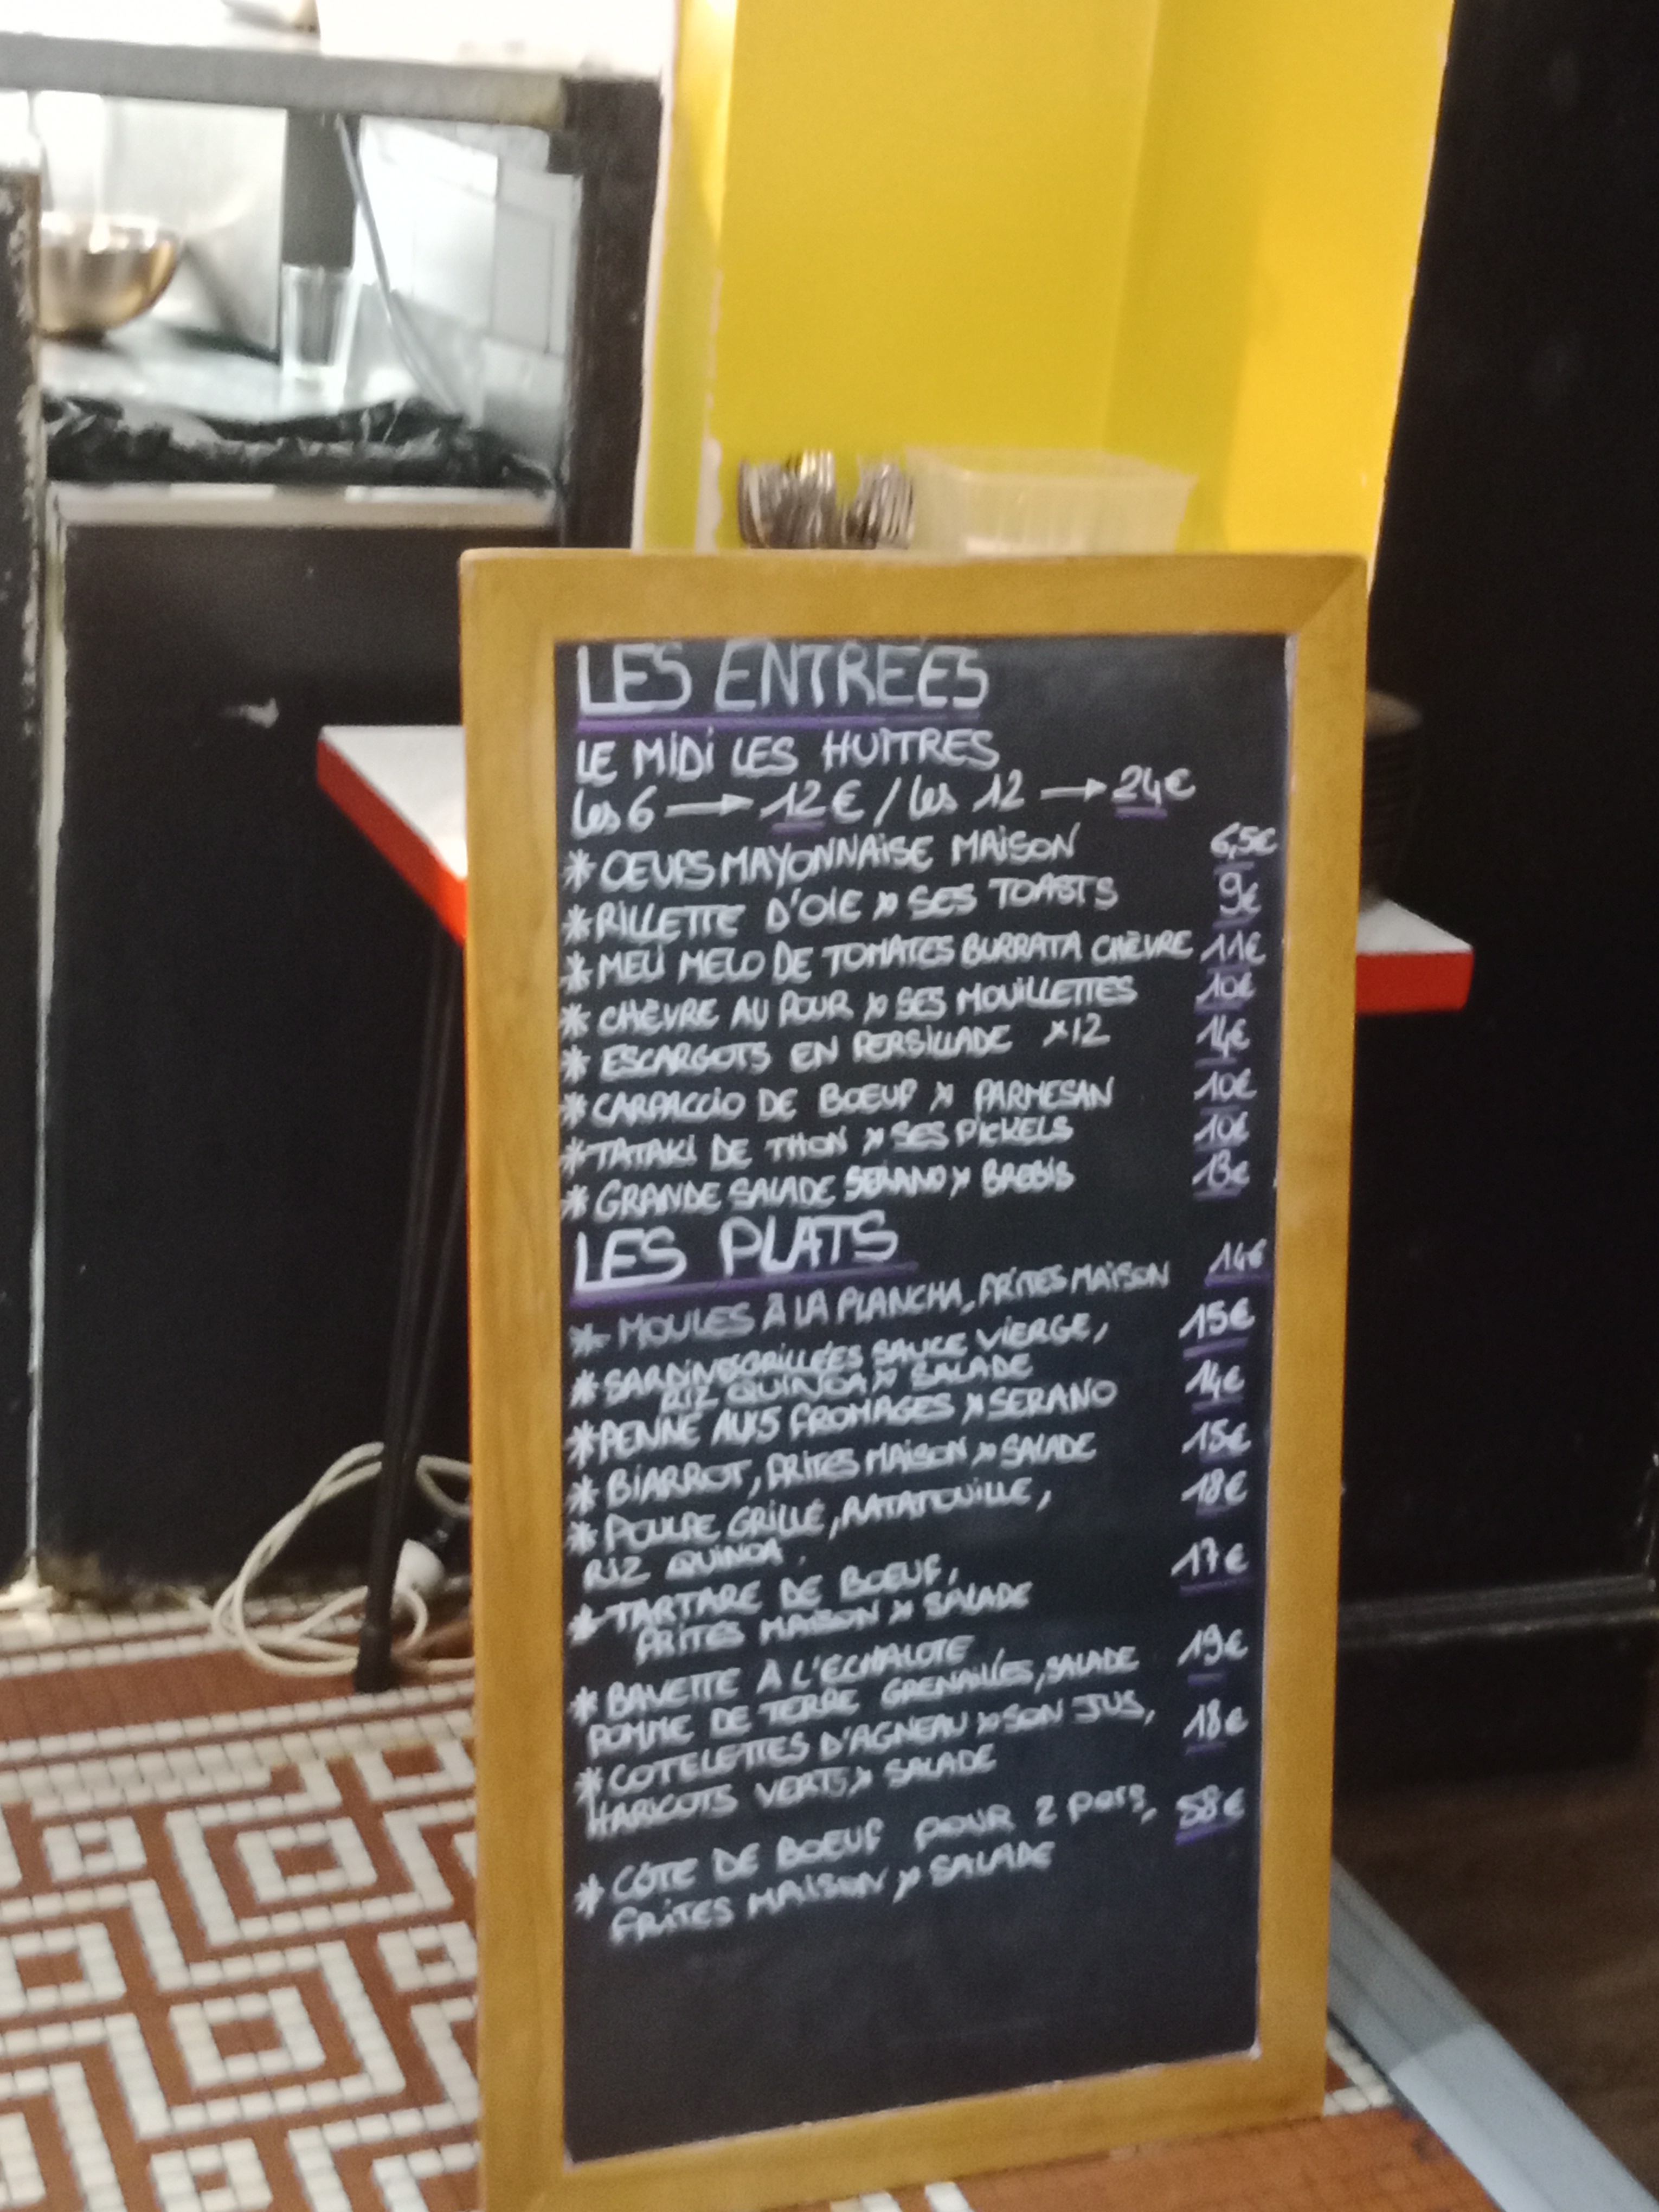 LES ENTREES
LE MIDI LES HUÎTRES
les 6 → 12€ / les 12 → 24€
* ŒUFS MAYONNAISE MAISON 6,5€
* RILLETTE D'OIE & SES TOASTS 9€
* MELI MELO DE TOMATES BURRATA CHÈVRE 11€
* CHÈVRE AU FOUR & SES MOUILLETTES 10€
* ESCARGOTS EN PERSILLADE x12 14€
* CARPACCIO DE BOEUF & PARMESAN 10€
* TATAKI DE THON & SES PICKELS 10€
* GRANDE SALADE SERANO & BREBIS 13€
LES PLATS
* MOULES À LA PLANCHA, FRITES MAISON 14€
* SARDINES GRILLÉES SAUCE VIERGE, 15€
RIZ QUINOA & SALADE
* PENNE AUX 5 FROMAGES & SERANO 14€
* BIARROT, FRITES MAISON & SALADE 15€
* POULPE GRILLÉ, RATATOUILLE, 18€
RIZ QUINOA.
* TARTARE DE BOEUF, 17€
FRITES MAISON & SALADE
* BAVETTE À L'ECHALOTE 19€
POMME DE TERRE GRENAILLES, SALADE
* COTELETTES D'AGNEAU & SON JUS, 18€
HARICOTS VERTS, & SALADE
* CÔTE DE BOEUF POUR 2 pers, 58€
FRITES MAISON & SALADE